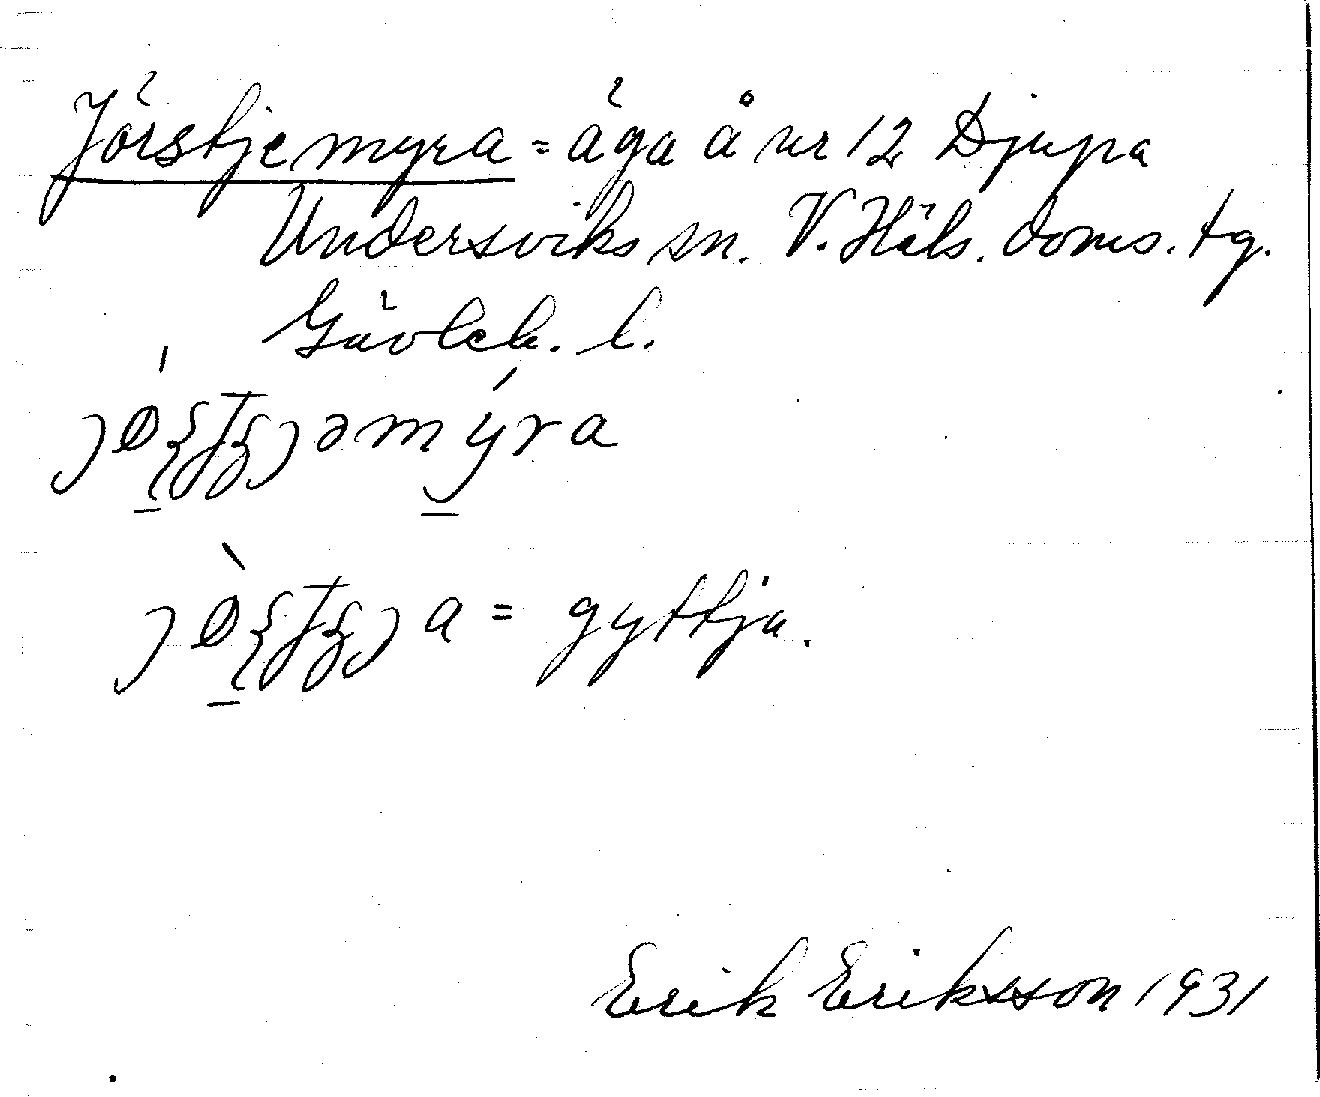 Jörstjemyra = äga å nr 12 Djupa
Undersviks sn. V. Häls. doms. tg.
Gävleb. l.
= gyttja.
Erik Eriksson 1931